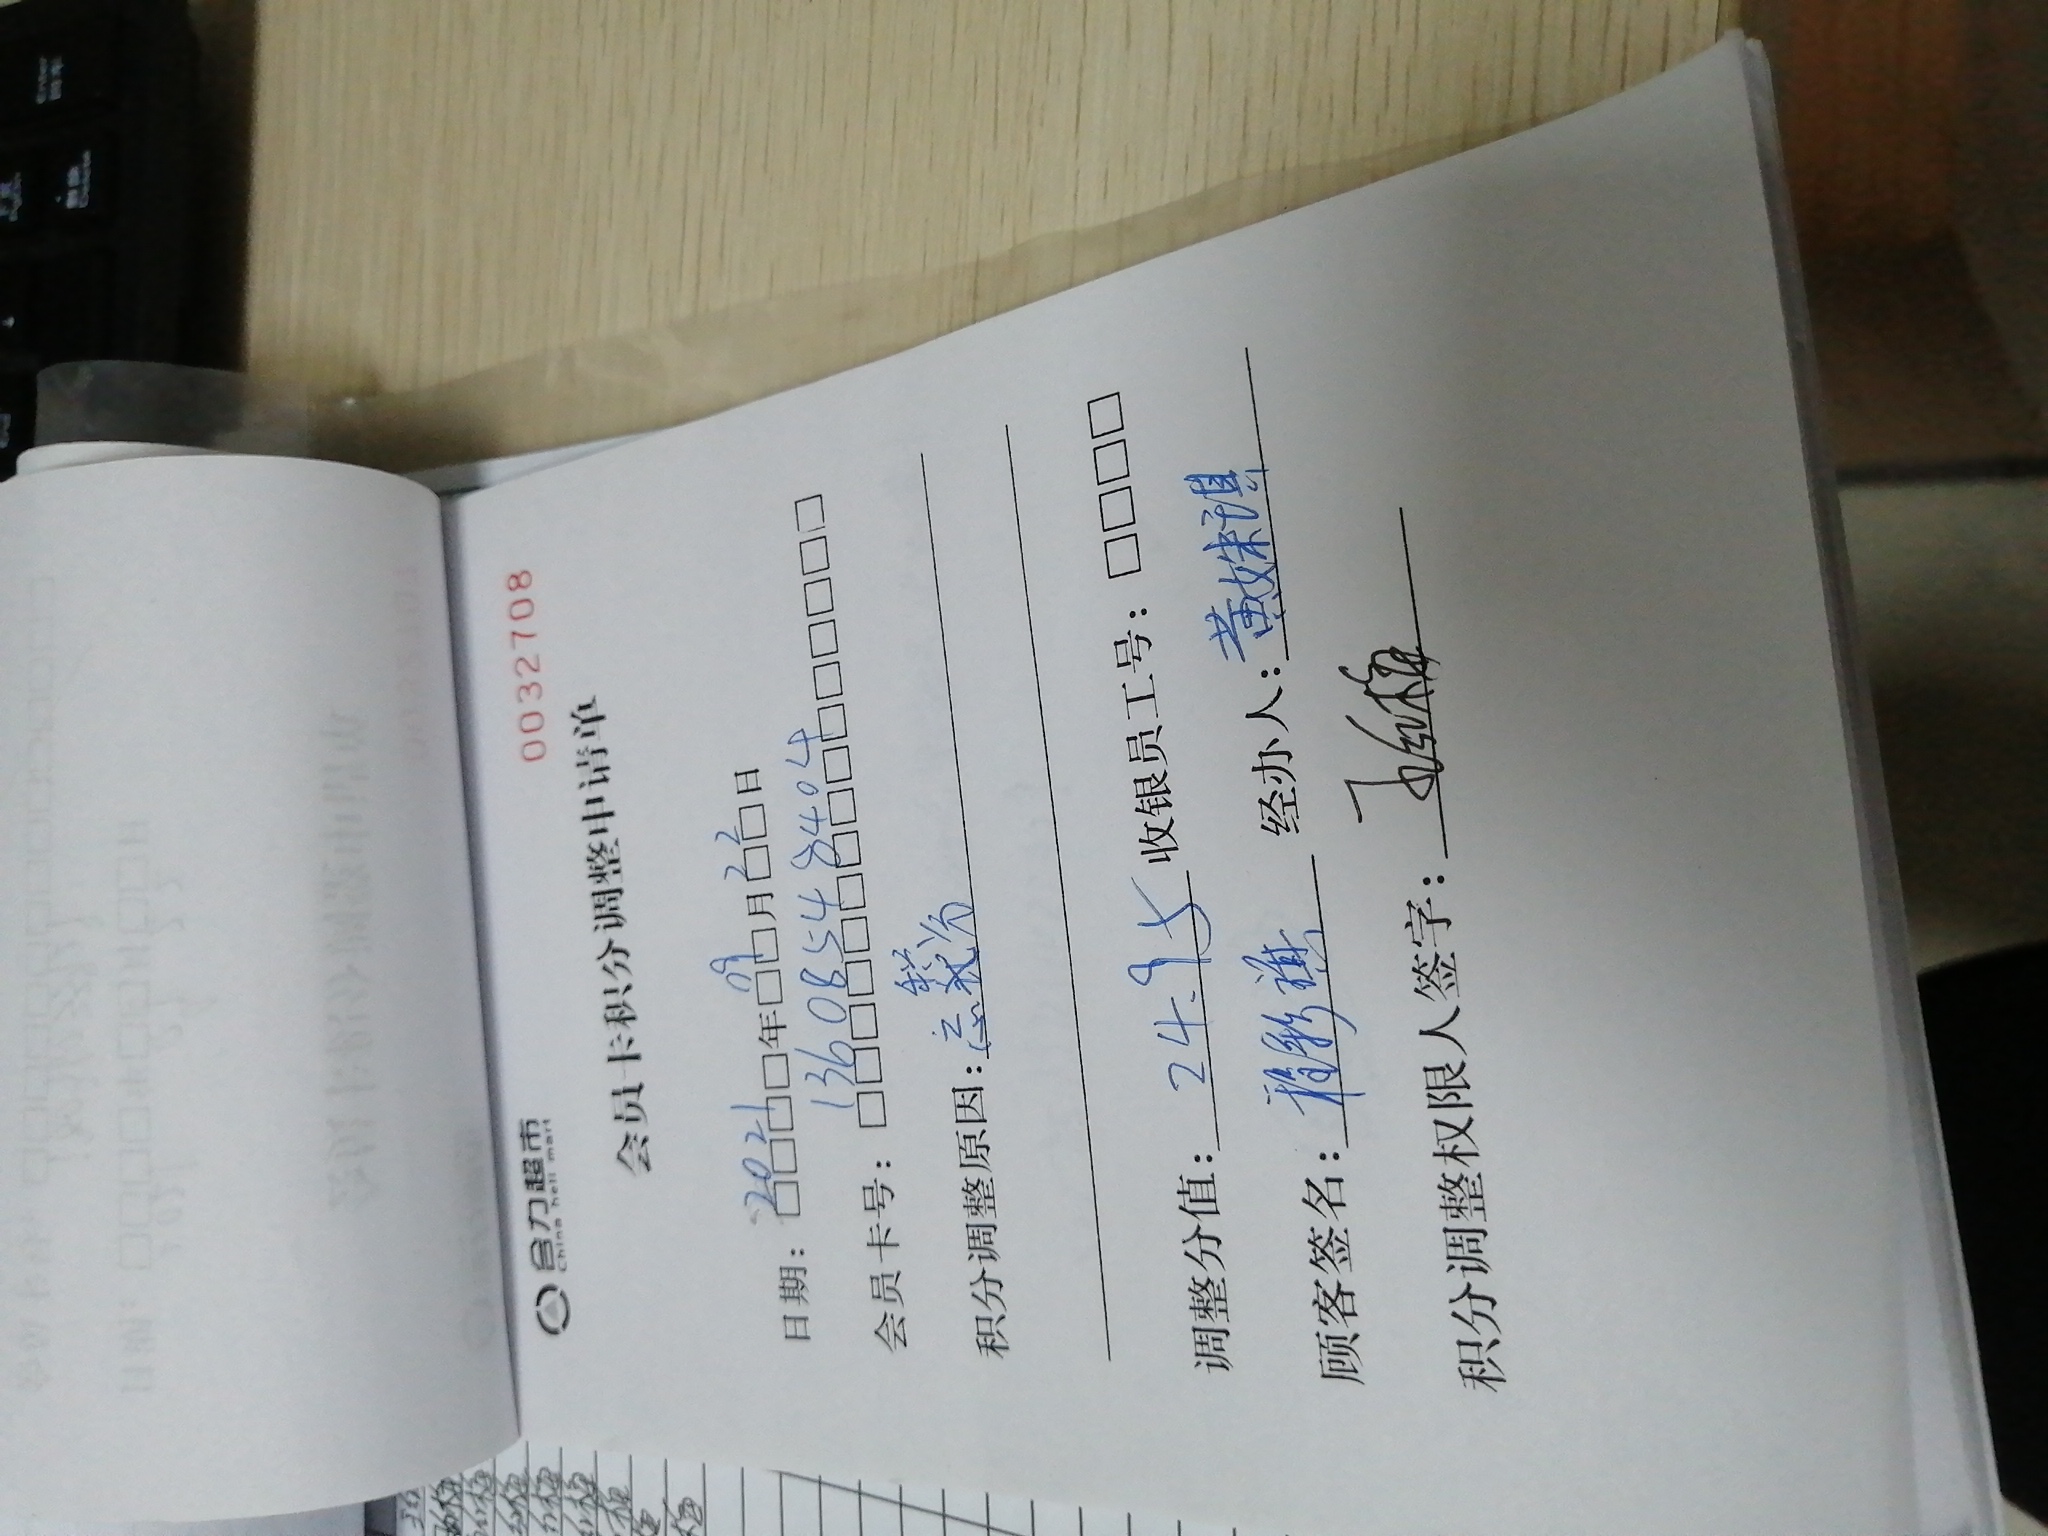 合力超市
China heli mart
0032708
会员卡积分调整申请单
日期：2021年09月22日
会员卡号：13608548404
积分调整原因：忘积分
调整分值：24.95 收银员工号：
顾客签名：程彩祺 经办人：黄妹琪
积分调整权限人签字：